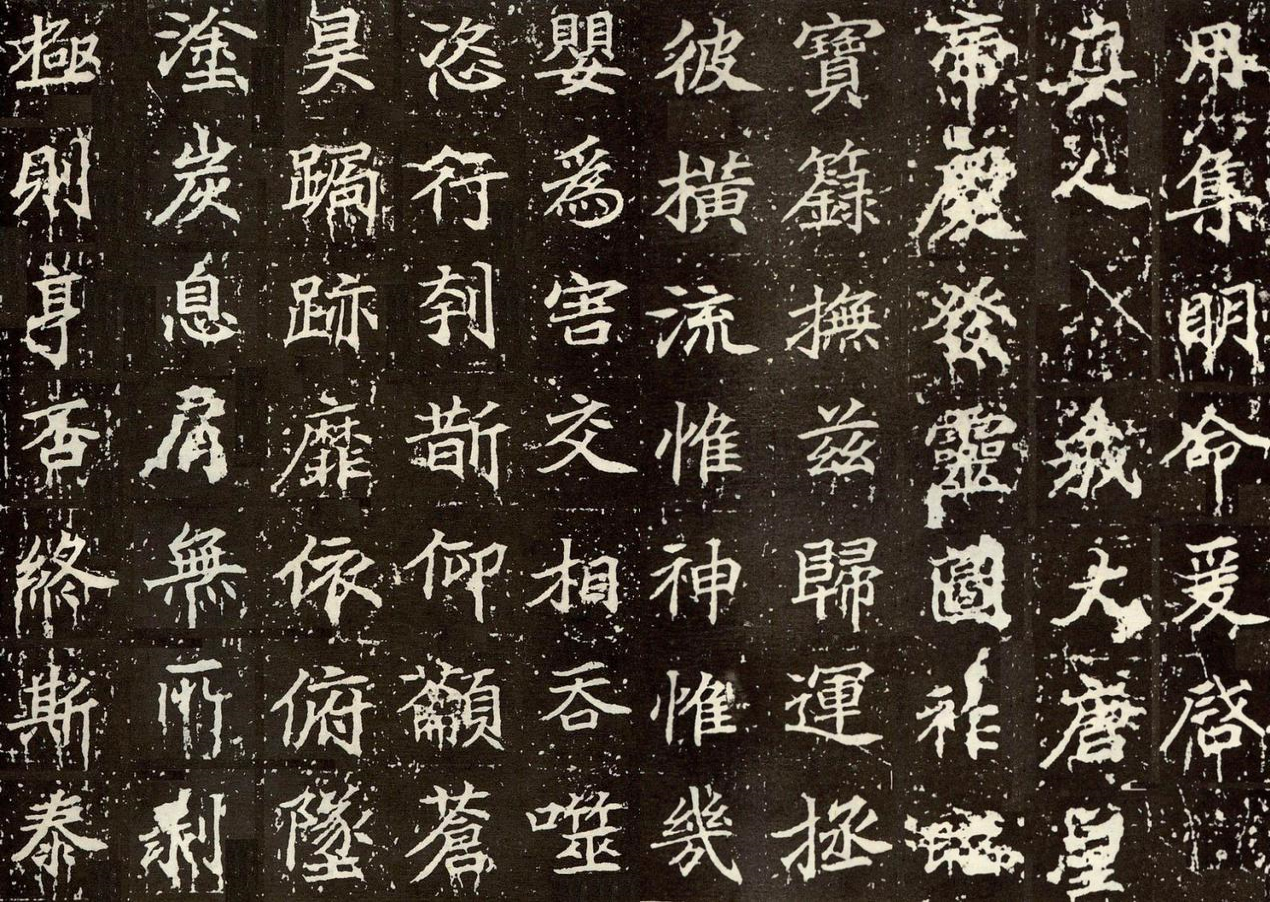 用集明命爰啓
真人我大唐皇
帝慶發靈圖祚
寶籙撫茲歸運拯
彼橫流惟神惟幾
嬰為害交相吞噬
恣行刳斮仰籲蒼
昊跼跡靡依俯墜
塗炭息肩無所剝
極則亨否終斯泰